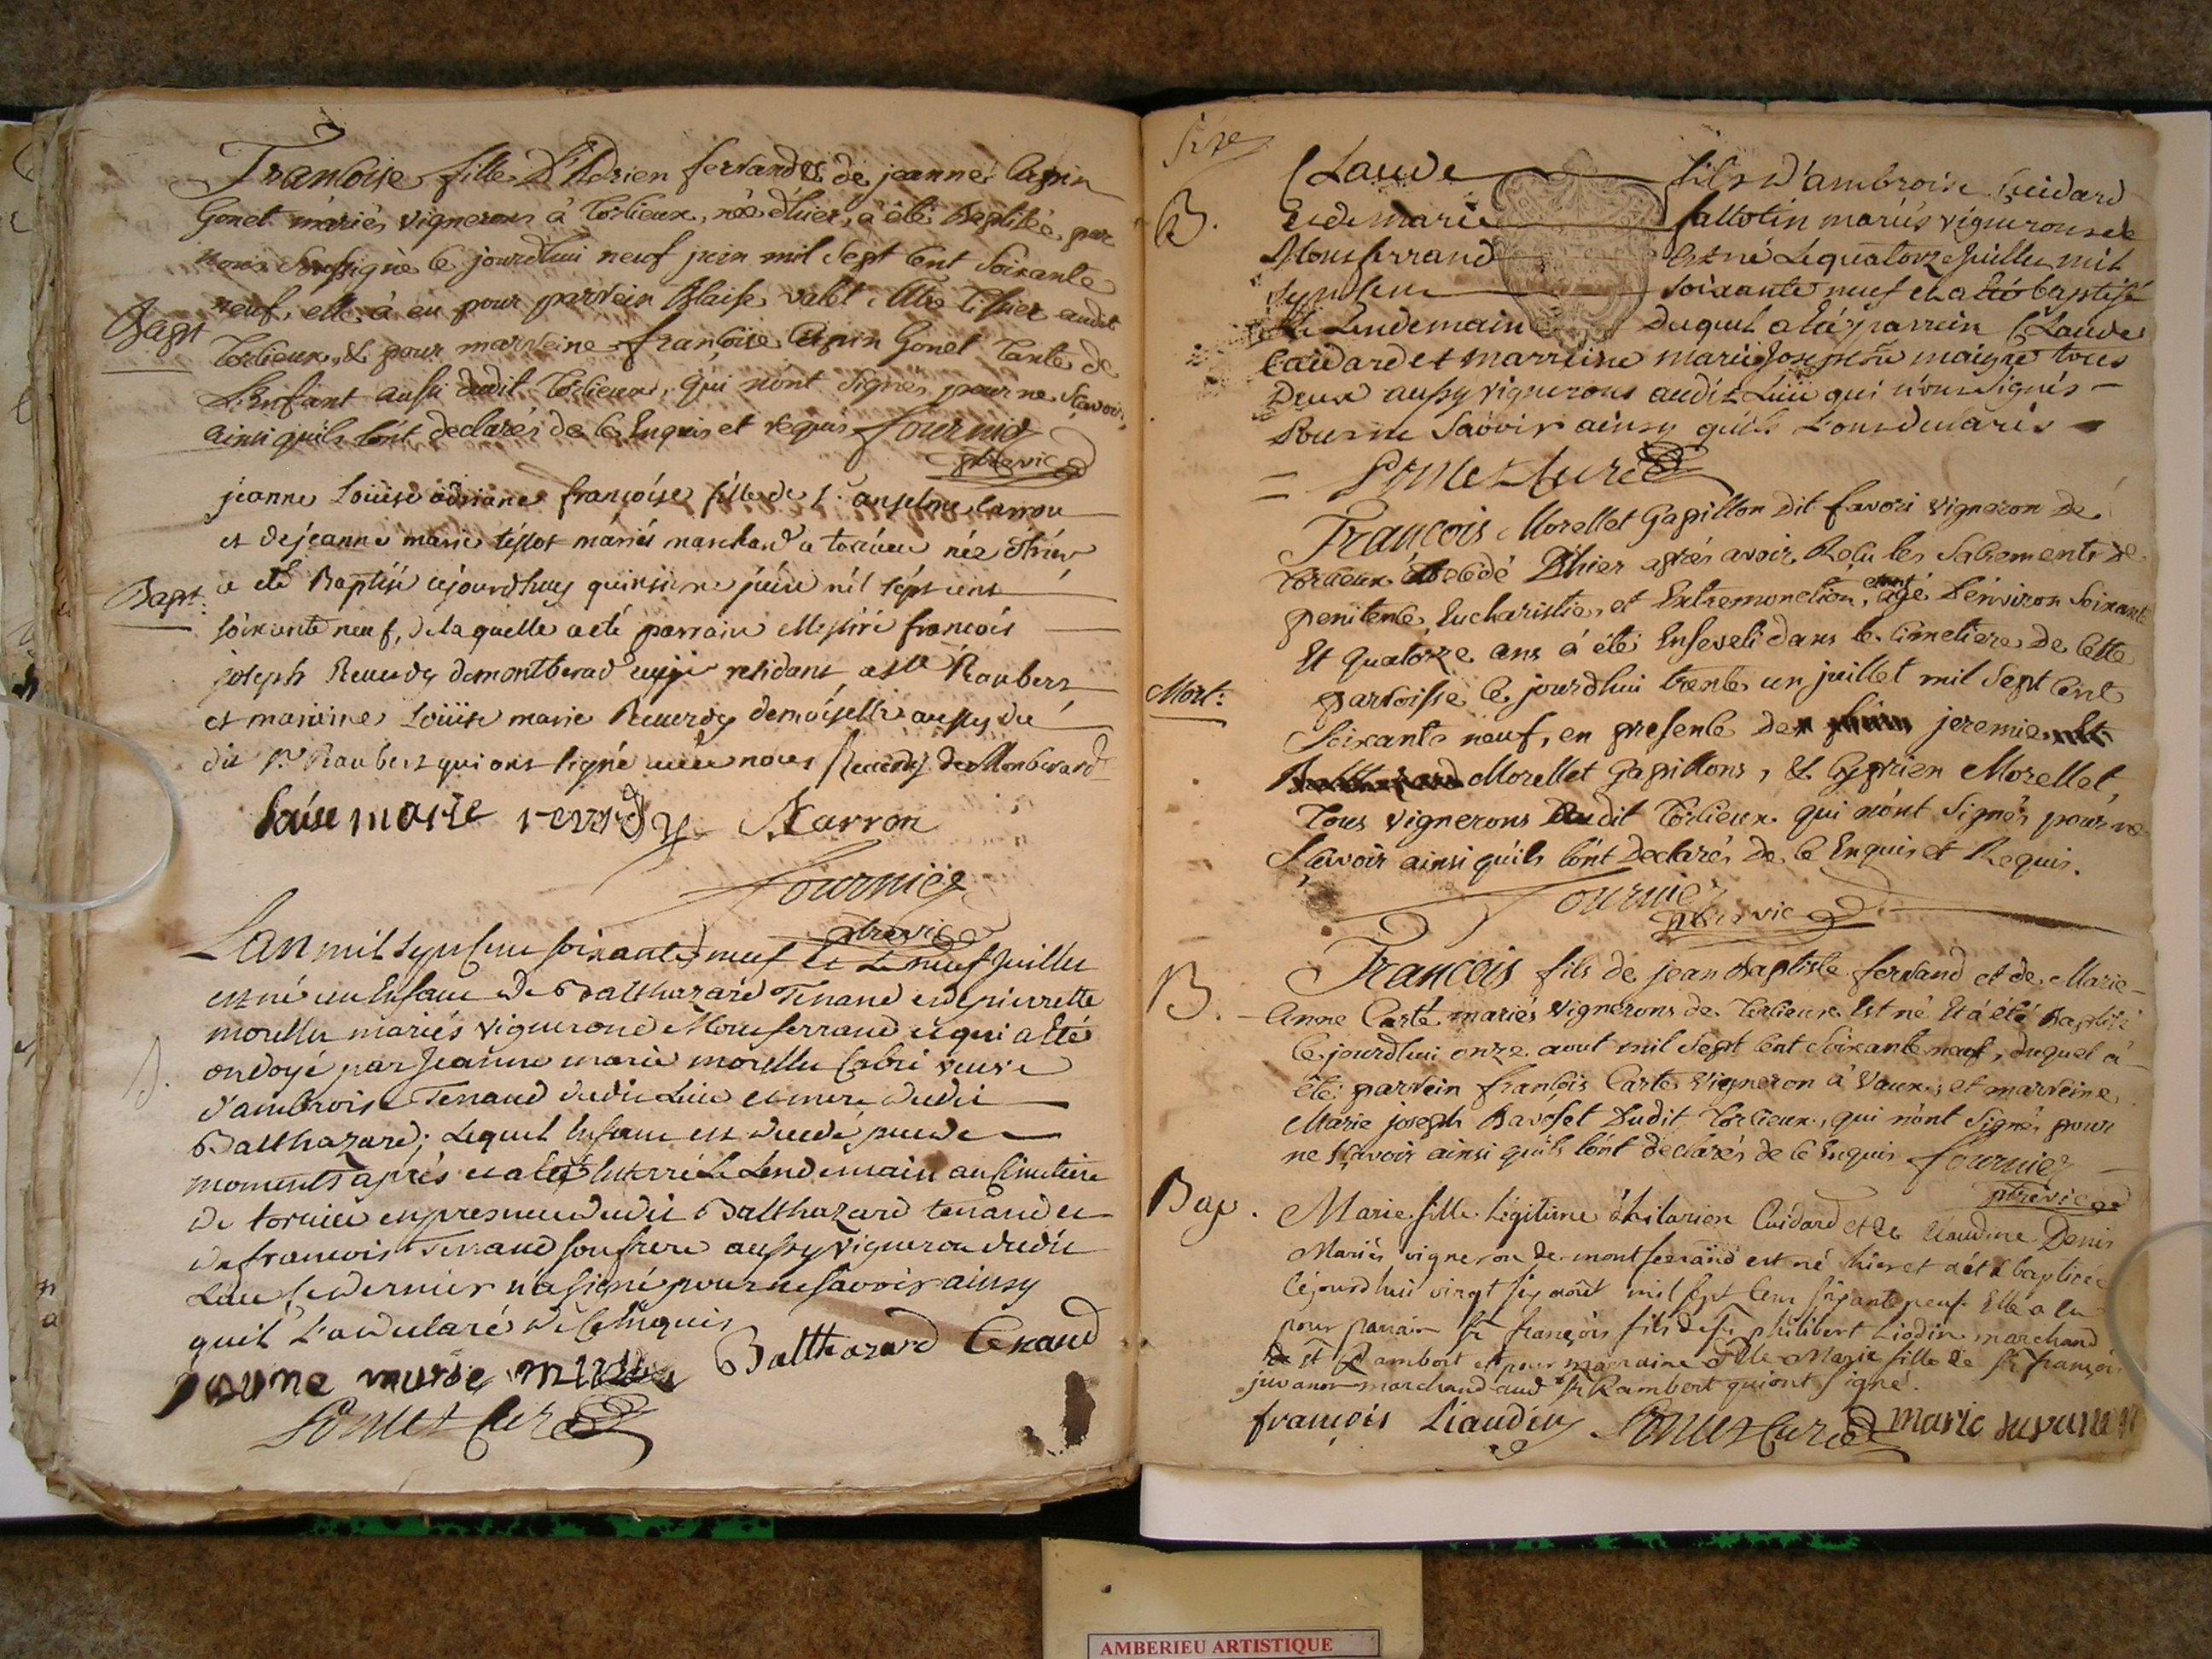 Francoise fille D'Adrien ferrand et de jeanne Cuzin
Gonet mariés vignerons à Torcieux, née d'hier, à été Baptisée par
nous soussigné ce jourdhui neuf juin mil sept cent soixante
neuf, elle à eu pour parrein Blaise valet Mtre Tisier audit
Bapt
Torcieux, & pour marreine françoise Cuzin Gonet tante de
L'Enfant aussi dudit Torcieux, qui nont signés pour ne sçavoir,
ainsi quils l'ont declarés de ce Enquis et requis fournier
ptre vic
jeanne Louise adriane françoise fille de Sr anselme Carron
et de jeanne marie tissot mariés marchand a torcieu née d'hier
Bapt.
a eté Baptisé cejourdhuy quinsieme juin mil sept cent
soixante neuf, de laquelle a eté parrain Messire francois
joseph Reverdy de montberard residant a st Rambert
et maraine Loüise marie Reverdy demoiselle aussy du
dit st Rambert qui ont signé avec nous Reverdy de Monberard
Loüise marie reverdy Carron
Fournier
ptre vic
Lan mil sept cent soixante neuf et le neuf juillet
est né un Enfant de Balthazard Tenand et de pierrette
morellet mariés vignerons de Monferrand et qui a eté
B.
ondoyé par Jeanne marie morellet Cabri veuve
d'ambroise Tenand dudit Lieu et mere dudit
Balthazard; Lequel Enfant est decedé peu de
moments aprés et a eté Enterré Le Lendemain au Cimetiere
de torcieu en presence dudit Balthazard tenand et
de francois Tenand son frere aussy vigneron dudit
Lieu Ce dernier n'a signé pour ne savoir ainsy
quil L'a declaré de Ce Enquis
Balthazard tenand
jeanne marie
Ponet Curé
Claude fils d'ambroise Cuidard
B.
et de marie fallotin mariés vignerons de
Monferrand est né Le quatorze juillet mil
sept cent soixante neuf et a eté baptisé
Le Lendemain duquel a eté parrein Claude
Cuidard et marreine marie Josephte maigre tous
deux aussy vignerons audit Lieu qui n'ont signés
Pour ne Savoir ainsy qu'ils L'ont declarés
Ponet Curé
François Morellet Gapillon dit favori vigneron de
Torcieux decedé D'hier aprés avoir Reçu les Sacrements de
penitence, Eucharistie, et Extremonction, agé D'environ soixante
Et quatorze ans à été Enseveli dans le Cimetiere de cette
Mort:
parroisse ce jourdhui trente un juillet mil sept cent
soixante neuf, en presence de jeremie
Morellet Gapillons, & Cyprien Morellet,
tous vignerons dudit Torcieux qui n'ont signés pour ne
sçavoir ainsi quils l'ont Declarés de ce Enquis et Requis.
Fournier
ptre vic
B.
François fils de jean Baptiste ferrand et de Marie
Anne Carté mariés vignerons de Torcieux Est né Et à été Baptisé
ce jourdhui onze aout mil sept cent soixante neuf, duquel à
été parrein françois Carté vigneron à Vaux, et marreine
Marie joseph Bavoset Dudit Torcieux, qui n'ont signés pour
ne sçavoir ainsi quils l'ont declarés de ce Enquis fournier
ptre vic
Bap.
Marie fille légitime d'hilarion Cuidard et de Claudine Denis
Mariés vigneron de montferrand est né hier et a été baptisée
cejourdhui vingt six août mil sept cent soixante neuf Elle a eu
pour parrain Sr françois fils de Sr philibert Liodin marchand
de st Rambert et pour marraine Dlle Marie fille de Sr françois
juvanon marchand aud st Rambert qui ont signé.
françois Liaudin Ponet Curé marie juvanon
AMBERIEU ARTISTIQUE